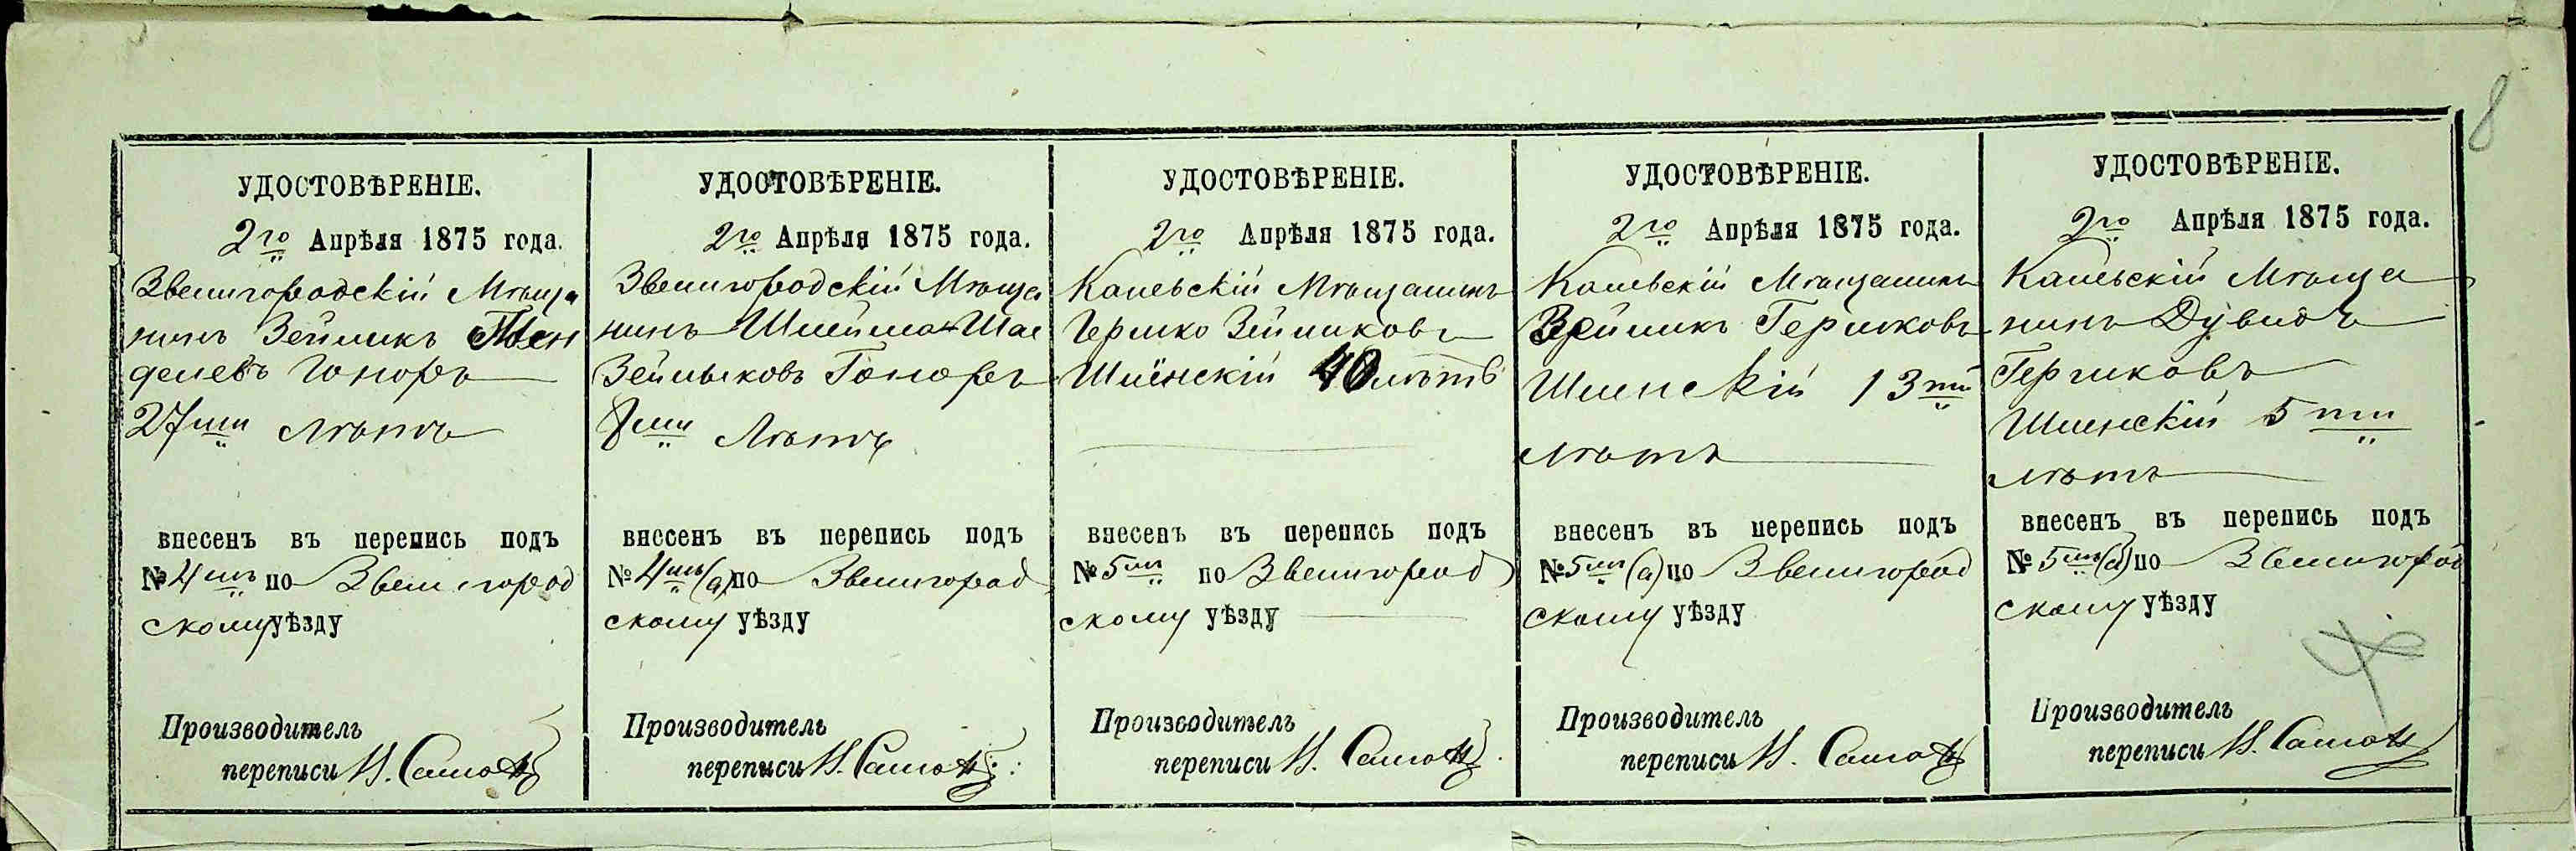 8
УДОСТОВѢРЕНІЕ.
2го Апрѣля 1875 года.
Звенигородскій Мѣща
нинъ Зейликъ Мен
делевъ Гоноръ
27ми лѣтъ
внесенъ въ перепись подъ
№ 4мъ по Звенигород
скому уѣзду
Производитель
переписи И.
УДОСТОВѢРЕНІЕ.
2го Апрѣля 1875 года.
Звенигородскій Мѣща
нинъ Шлейма Шае
Зейлыковъ Гоноръ
8ми Лѣтъ
внесенъ въ перепись подъ
№ 4мъ (а) по Звенигород
скому уѣзду
Производитель
переписи И.
УДОСТОВѢРЕНІЕ.
2го Апрѣля 1875 года.
Каневскій Мѣщанинъ
Гершко Зейликовъ
Шленскій 40 лѣтъ
внесенъ въ перепись подъ
№ 5мъ по Звенигород
скому уѣзду
Производитель
переписи И.
УДОСТОВѢРЕНІЕ.
2го Апрѣля 1875 года.
Каневскій Мѣщанинъ
Зейликъ Гершковъ
Шленскій 13ти
лѣтъ
внесенъ въ перепись подъ
№ 5мъ (а) по Звенигород
скому уѣзду
Производитель
переписи И.
УДОСТОВѢРЕНІЕ.
2го Апрѣля 1875 года.
Каневскій Мѣща
нинъ Дувидъ
Гершковъ
Шленскій 5ти
лѣтъ
внесенъ въ перепись подъ
№ 5мъ по Звенигород
скому уѣзду
Производитель
переписи И.